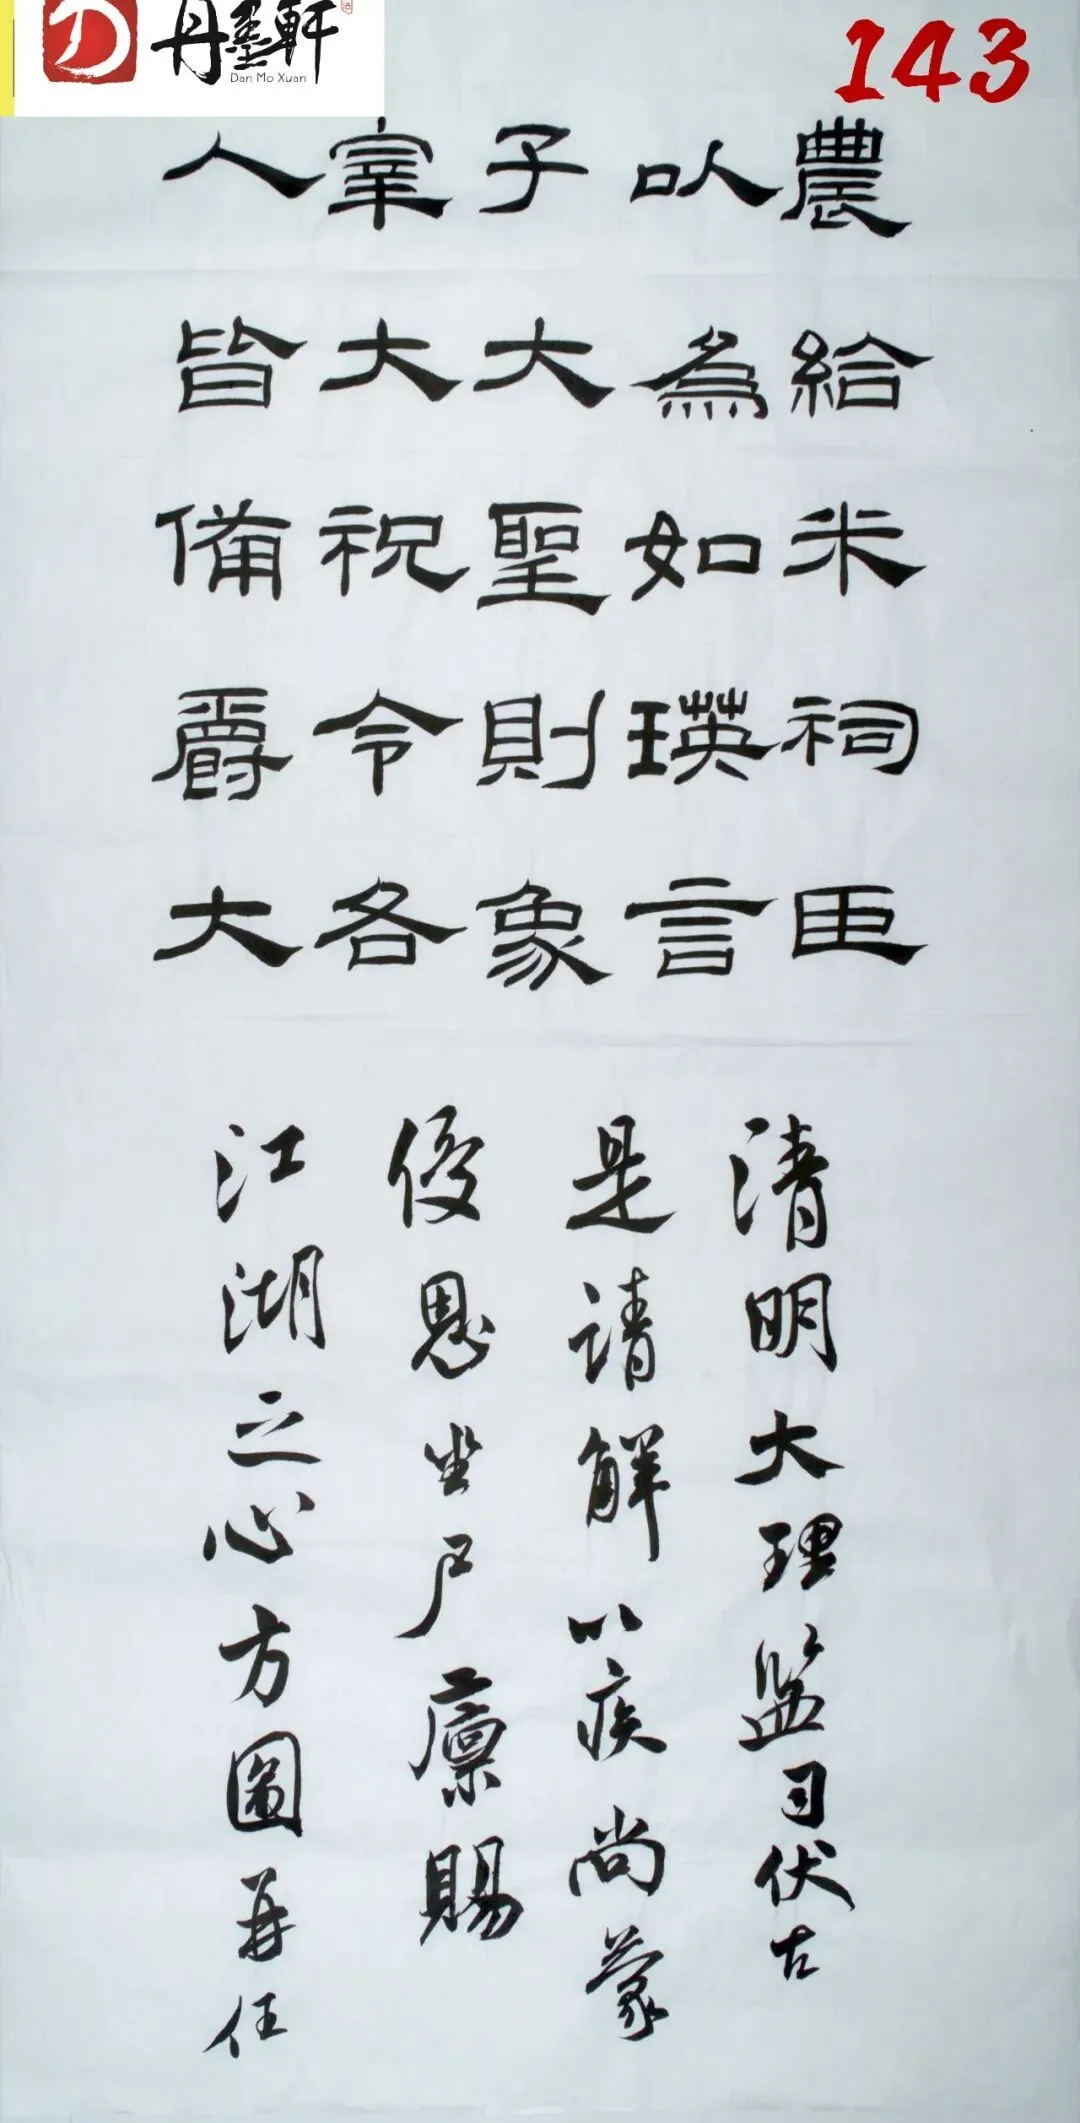 丹墨軒
Dan Mo Xuan
143
農給米祠臣
以為如瑛言
子大聖則象
宰大祝令各
人皆備爵大
清明大理監司伏古
是請解以疾尚蒙
優恩坐尸廪賜
江湖之心方圖再任